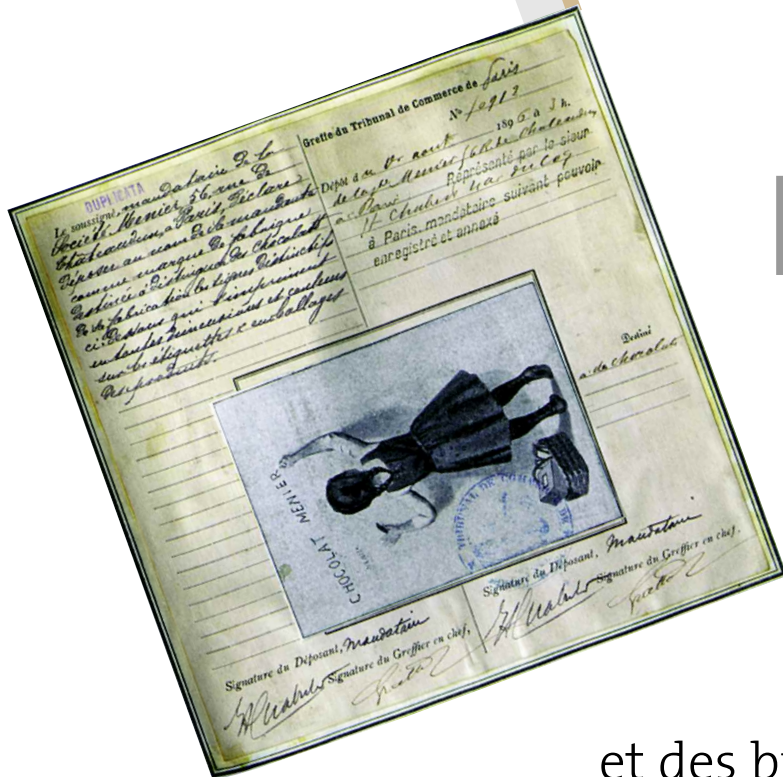 DUPLICATA
Le soussigné, mandataire de la
Société Menier, 56, rue de
Châteaudun, à Paris, déclare
déposer au nom de sa mandante
comme marque de fabrique
destinée à distinguer des chocolats
de sa fabrication les signes distinctifs
ci-dessus qui s'impriment
en toutes dimensions et couleurs
sur les étiquettes & emballages
des produits.
Greffe du Tribunal de Commerce de Paris
No
1896 à 3 h.
Dépôt d août
de la Sté Menier 56 R. de Chateaudun
à Paris Représenté par le sieur
à Paris, mandataire suivant pouvoir
enregistré et annexé
Destiné
à du chocolat
CHOCOLAT MENIER
TRIBUNAL DE COMMERCE DE
Signature du Déposant, Mandataire
Signature du Greffier en chef,
Signature du Déposant, Mandataire
Signature du Greffier en chef,
et des